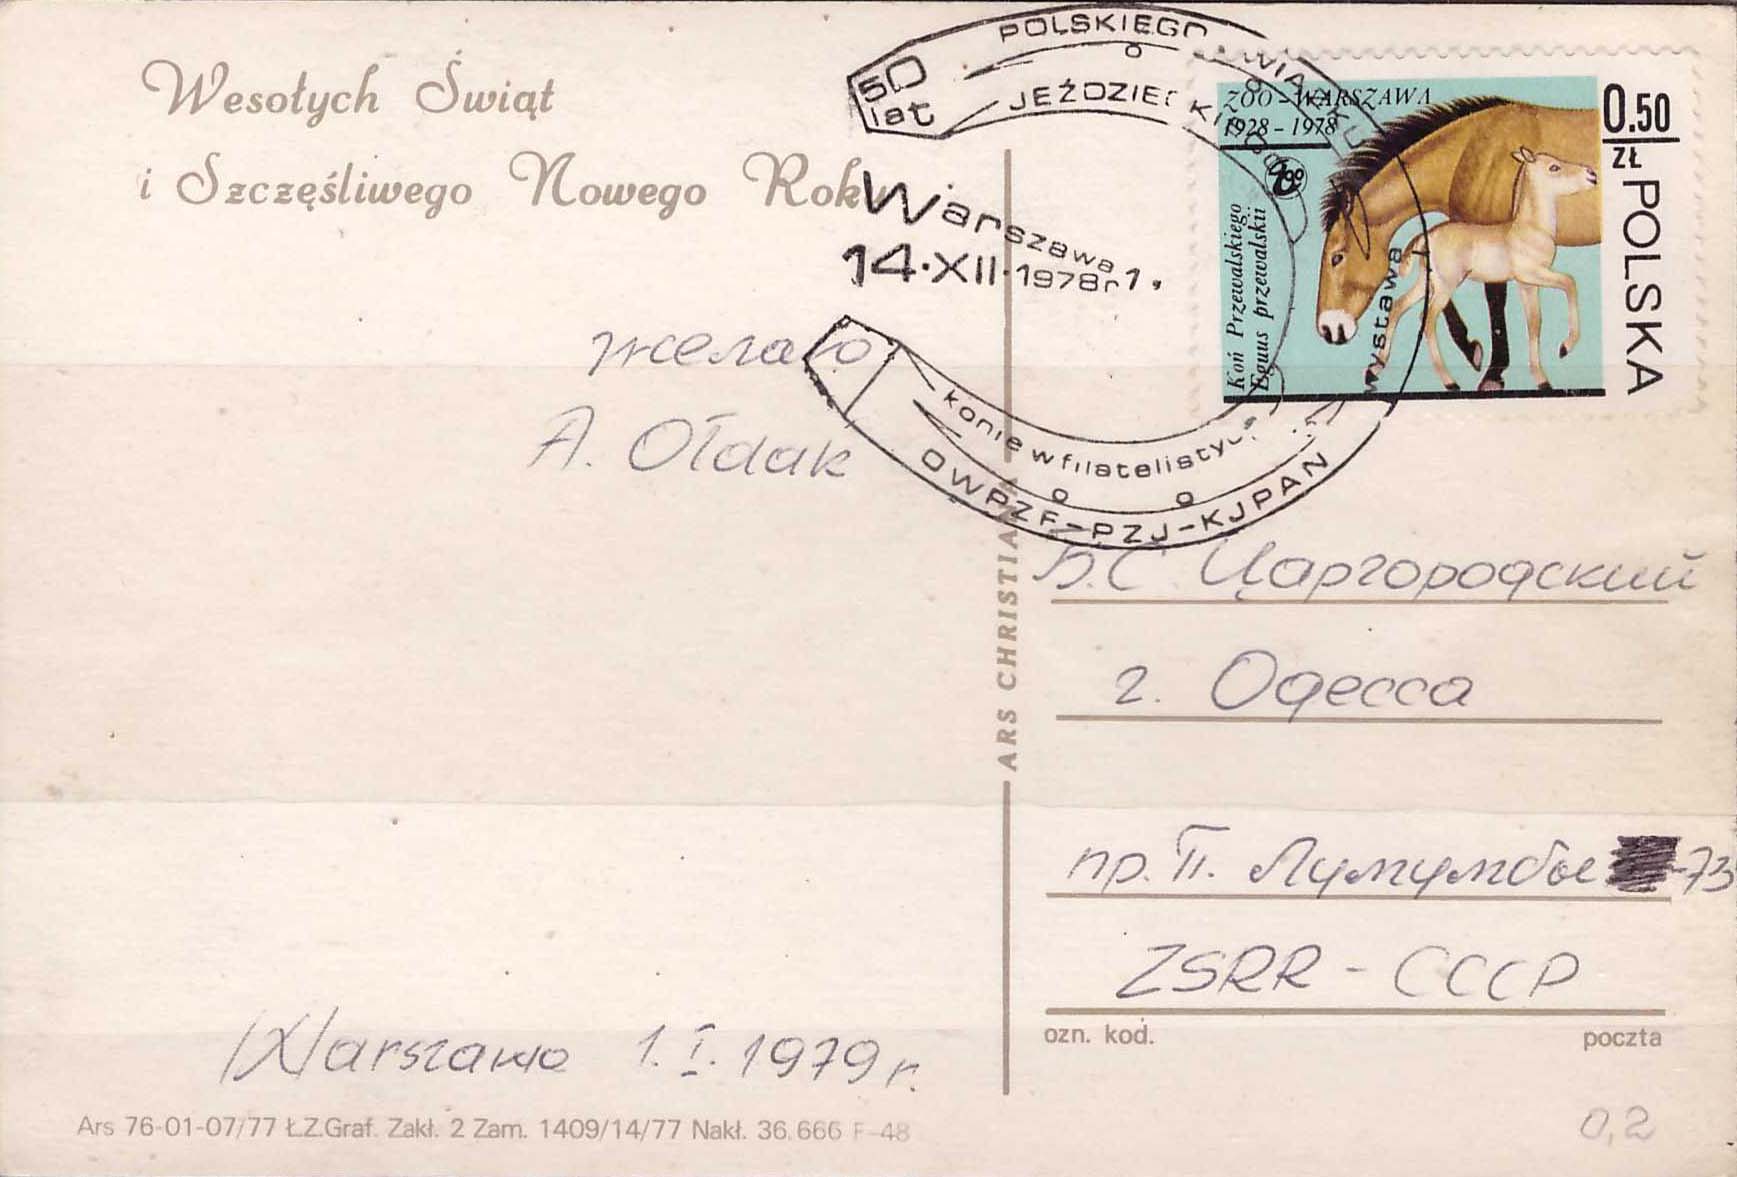 Wesołych Świąt
i Szczęśliwego Nowego Roku
50 lat
POLSKIEGO ZWIĄZKU
JEŹDZIECKIEGO
Warszawa 1.
14.XII.1978r
wystawa
konie w filatelistyce
OWPZF-PZJ-KJPAN
ZOO - WARSZAWA
1928 - 1978
Koń Przewalskiego
Equus przewalskii
0.50 ZŁ
POLSKA
желаю
A. Ołdak
ARS CHRISTIANA
Б.С Царгородский
г. Одесса
пр. П. Лумумбы -73
ZSRR - СССР
ozn. kod.
poczta
Warszawa 1.I.1979 r.
Ars 76-01-07/77 Ł.Z.Graf. Zakł. 2 Zam. 1409/14/77 Nakł. 36.666 F-48
0,2